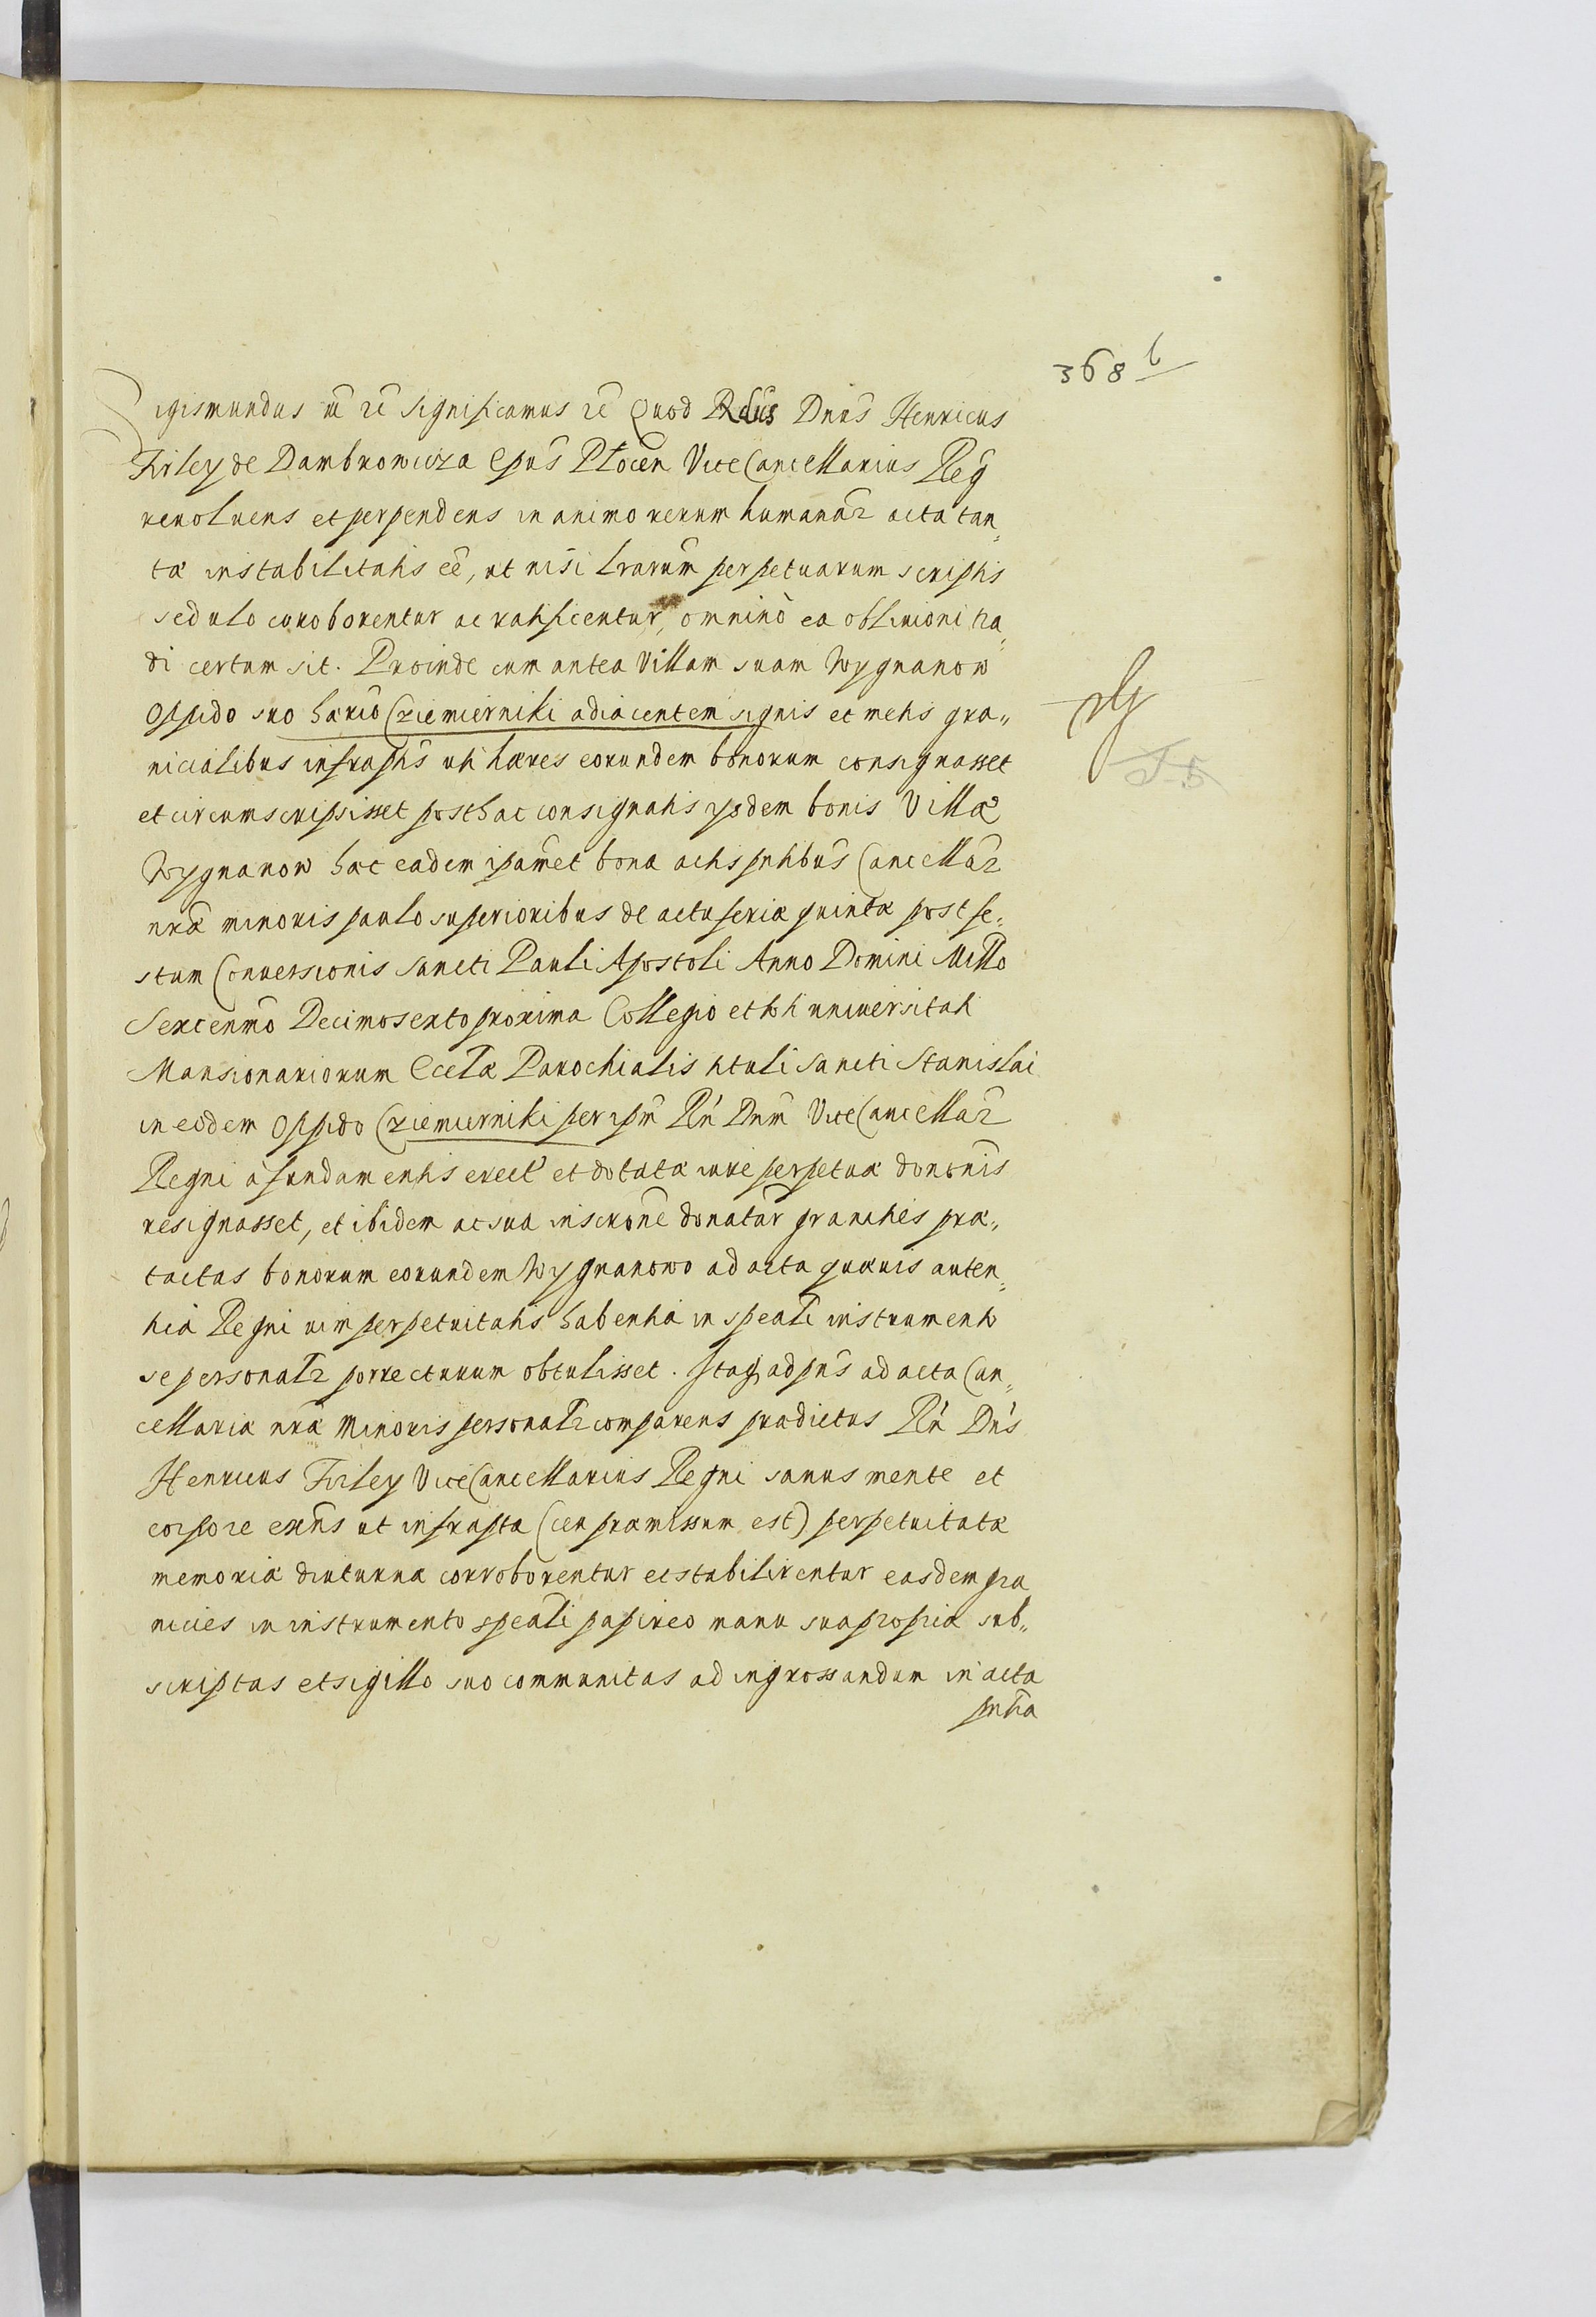 368 b
Sigismundus etc etc significamus etc Quod Rdus Dnus Henricus
Firley de Dambrowicza Epus Plocen ViceCancellarius Reg
reuoluens et perpendens in animo rerum humanar acta tan„
tæ instabilitatis eē, ut nisi lrarum perpetuarum scriptis
sedulo coroborentur ac ratificentur, omninò ea obliuioni tra„
di certum sit. Proinde cum antea Villam suam Wygnanow
Oppido suo hærio Cziemierniki adiacentem signis et metis gra„
nicialibus infraptis uti hæres eorundem bonorum consignasset
et circumscripsisset post hac consignatis ijsdem bonis Villæ
Wygnanow hæc eadem ipamet bona actis pntibus Cancellar
nræ minoris paulo superioribus de actu feria quinta post fe„
stum Conuersionis Sancti Pauli Apostoli Anno Domini Millo
Sexcenmo Decimosexto proxima Collegio et toti uniuersitati
Mansionariorum Eccla Parochialis tituli Sancti Stanislai
in eodem Oppido Cziemierniki per ipm Rn Dnm ViceCancellar
Regni à fundamentis erect et dotatæ iure perpetuæ donōnis
resignasset, et ibidem ac sua inscrōne donatar granities præ„
tactas bonorum eorundem Wygnanowo ad acta quæuis auten„
tica Regni uim perpetuitatis habentia in speali instrumento
se personalr porrecturum obtulisset. Itaq ad pns ad acta Can„
cellariæ nræ Minoris personalr comparens prædictus Rn Dns
Henricus Firley ViceCancellarius Regni sanus mente et
corpore exns ut infrapta (ceu præmissum est) perpetuitatæ
memoriæ diuturna corroborentur et stabilirentur easdem gra
nicies in instrumento speali papireo manu sua propria sub„
scriptas et sigillo suo communitas ad ingrossandum in acta
pntia